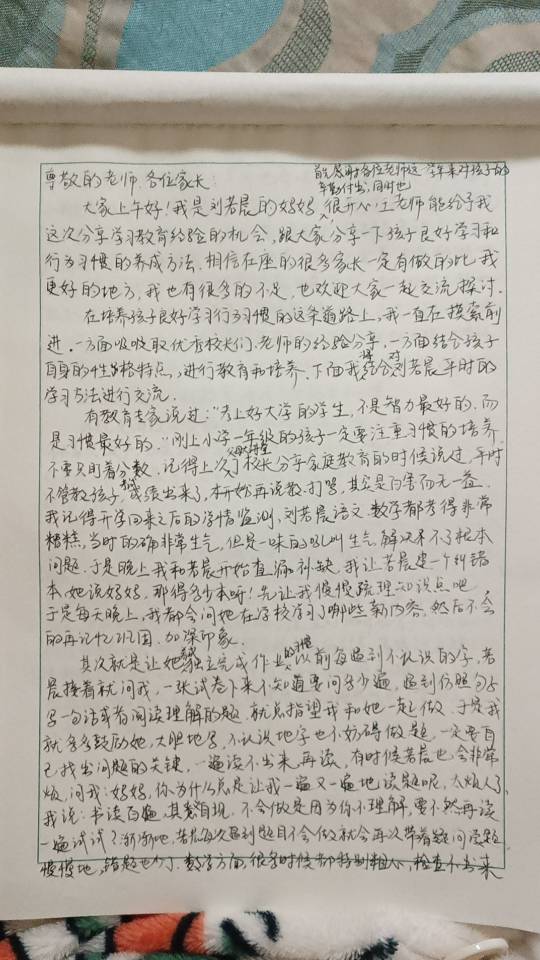 尊敬的老师、各位家长:
首先感谢各位老师这一学年来对孩子的
辛勤付出,同时也
大家上午好!我是刘若晨的妈妈,很开心王老师能给予我
这次分享学习教育经验的机会,跟大家分享一下孩子良好学习和
行为习惯的养成方法。相信在座的很多家长一定有做的比我
更好的地方,我也有很多的不足,也欢迎大家一起交流探讨。
在培养孩子良好学习行为习惯的这条道路上,我一直在摸索前
进。一方面吸取优秀校长们、老师的经验分享,一方面结合孩子
自身的性格特点,进行教育和培养。下面我结合对刘若晨平时的
学习方法进行交流。
有教育专家说过:“考上好大学的学生,不是智力最好的,而
是习惯最好的。”刚上小学一年级的孩子一定要注重习惯的培养
不要只盯着分数。记得上次校长分享家庭教育的时候说过,平时
不管教孩子,考试成绩出来了,才开始再说教、打骂,其实是百害而无一益。
我记得开学回来之后的学情监测,刘若晨语文、数学都考得非常
糟糕,当时的确非常生气,但是一味的吼叫生气解决不了根本
问题。于是晚上我和若晨开始查漏补缺,我让若晨建一个纠错
本,她说妈妈,那得多少本呀!先让我慢慢梳理知识点吧,
于是每天晚上,我都会问她在学校学习了哪些新内容,然后不会
的再记忆巩固,加深印象。
其次就是让她独立完成作业的习惯,以前每遇到不认识的字,若
晨接着就问我,一张试卷下来不知道要问多少遍,遇到仿照句子
写一句话或者阅读理解的题,就总指望我和她一起做。于是我
就多多鼓励她,大胆地写,不认识地字也不妨碍做题,一定要自
己找出问题的关键,一遍读不出来,再读,有时候若晨也会非常
烦,问我:妈妈,你为什么总是让我一遍又一遍地读题呢,太烦人了,
我说:书读百遍,其义自现。不会做是因为你不理解,要不然再读
一遍试试?渐渐地,若晨每次遇到题目不会做就会再次带着疑问读题
慢慢地,错题也少了。数学方面,很多时候都特别粗心,检查不出来